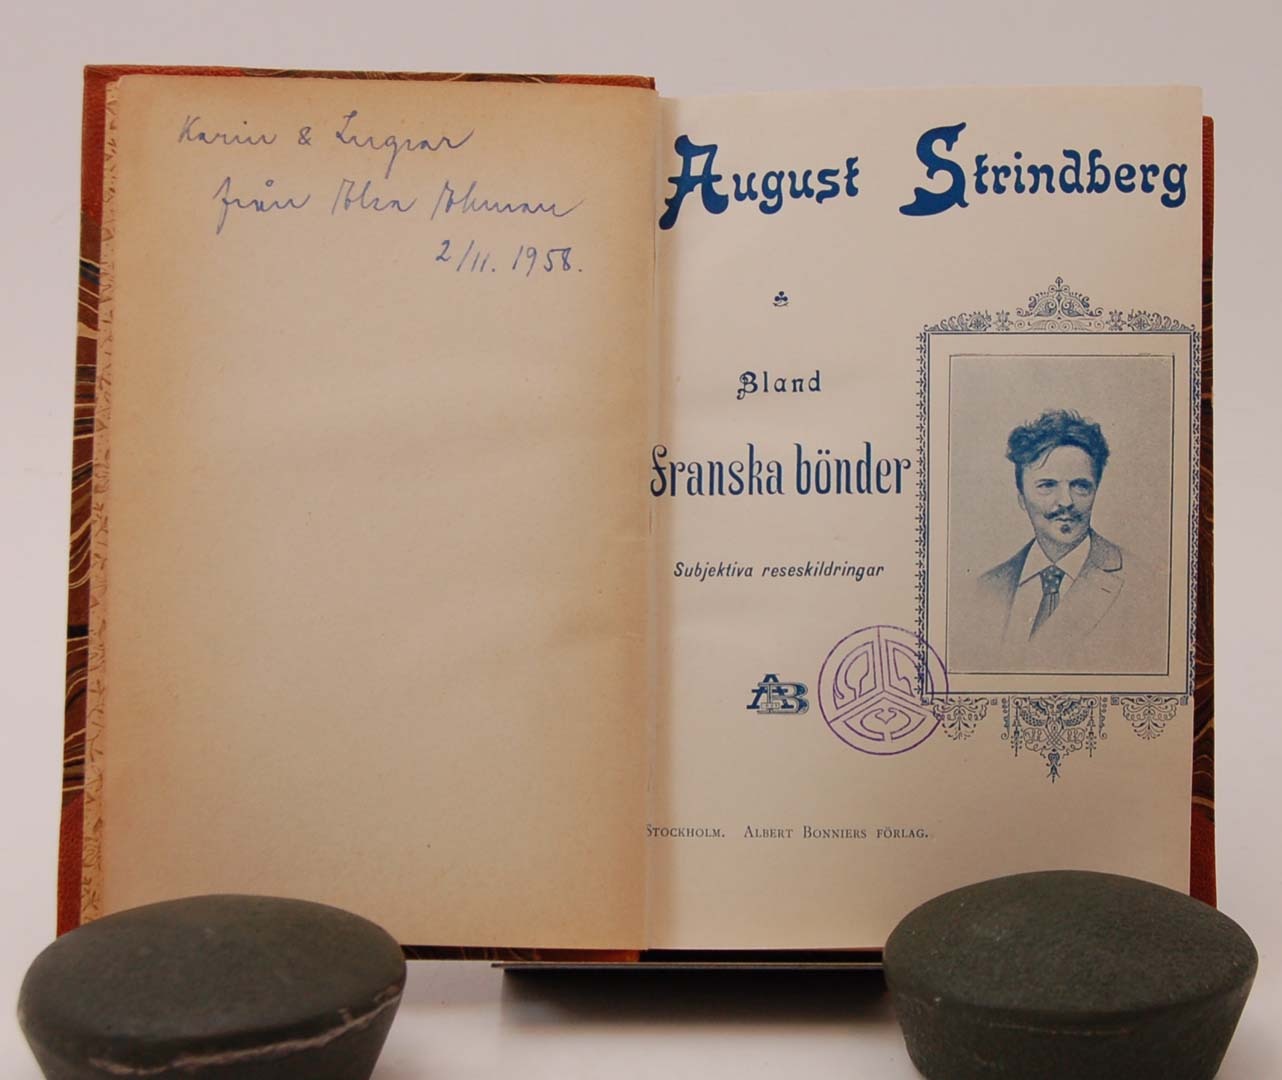 Karin & Ingvar
från Elsa Ekman
2/11. 1958.
August Strindberg
Bland
franska bönder
Subjektiva reseskildringar
STOCKHOLM. ALBERT BONNIERS FÖRLAG.